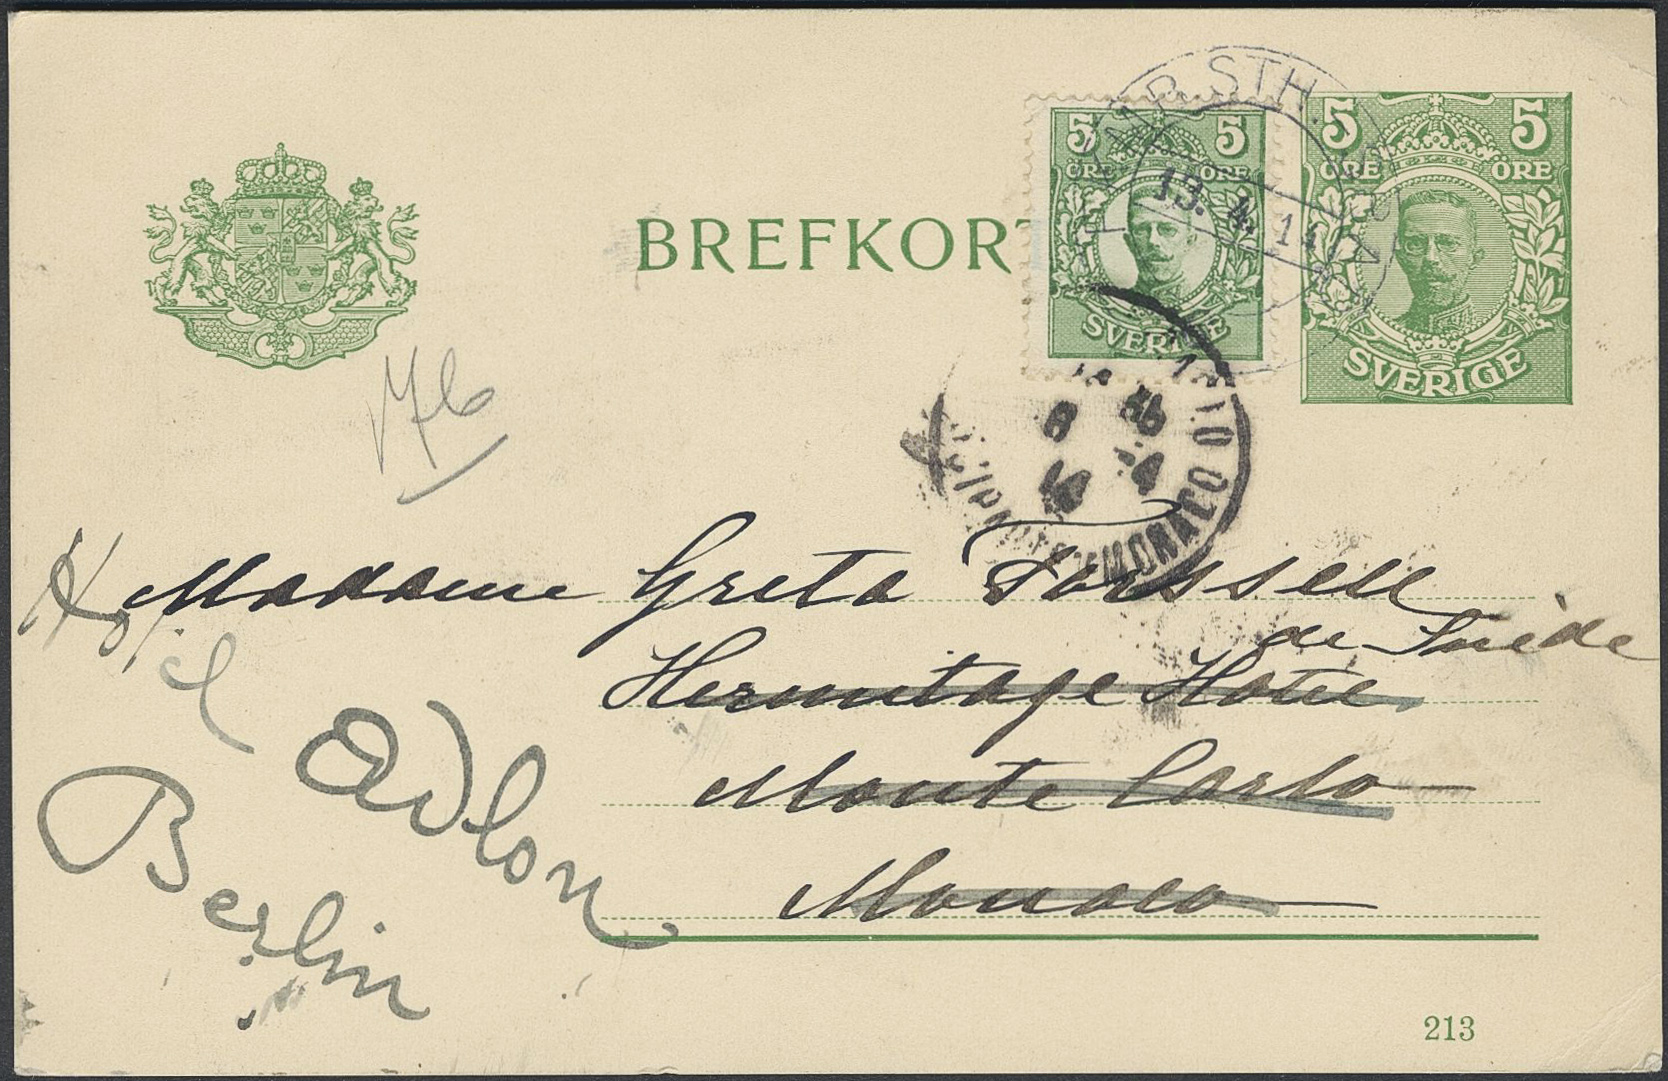 BREFKORT
5 5
ÖRE ÖRE
SVERIGE
5 5
ÖRE ÖRE
SVERIGE
STH
13. 4. 14
MONACO
Madame Greta Forssell
de Suède
Hermitage Hotel
Monte Carlo
Monaco
Adlon
Berlin
213